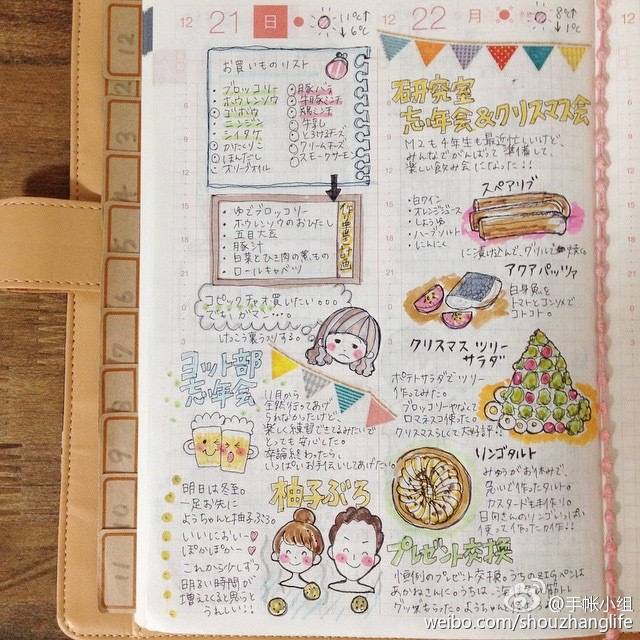 12
21
日
11℃↑
6℃↓
お買いものリスト
・ブロッコリー
・ホウレンソウ
ゴボウ
・ニンジン
・シイタケ
・かたくりこ
・ほんだし
・オリーブオイル
豚バラ
牛豚ミンチ
鶏ミンチ
牛乳
とろけるチーズ
クリームチーズ
スモークサーモン
・ゆでブロッコリー
・ホウレンソウのおひたし
・五目大豆
・豚汁
・白菜とひき肉の蒸しもの
・ロールキャベツ
作り置き計画
コピックチャオ買いたい。。。
でもガマン…。
けっこう裏うつりする。
ヨット部
忘年会
11月から
全然行ってあげ
られなかったけど、
楽しく練習できてるみたいで
とっても安心した。
卒論終わったら、
いっぱいお手伝いしてあげたい。
明日は冬至。
一足お先に
ようちゃんと柚子ぶろ。
いいにおいー
ぽかぽかー
これから少しずつ
明るい時間が
増えてくると思うと
うれしい!!
柚子ぶろ
12
22
月
8℃↑
1℃↓
研究室
忘年会&クリスマス会
M2も4年生も最近忙しいけど、
みんなでがんばって準備して、
楽しい飲み会になった!!
スペアリブ
・白ワイン
・オレンジジュース
・しょうゆ
・ハーブソルト
・にんにく
に漬け込んで、グリルで焼く。
アクアパッツァ
白身魚を
トマトとコンソメで
コトコト。
クリスマスツリー
サラダ
ポテトサラダでツリー
作ってみた。
ブロッコリーやなくて
ロマネスコ使った。
クリスマスらしくて大好評!!
リンゴタルト
みゅうがお休みで、
急いで作ったタルト。
カスタードも手作り。
日向さんのリンゴいっぱい
使って作った力作!!
プレゼント交換
恒例のプレゼント交換。うちの
あかねさんに。うちは、
グッズもらった。ようちゃん
12
2
3
7
9
11
@手帐小组
weibo.com/shouzhanglife